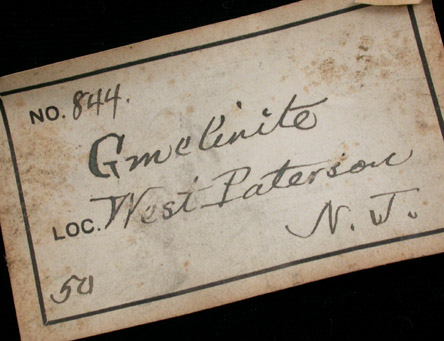 NO. 844.
Gmelinite
LOC. West Paterson
N. J.
50